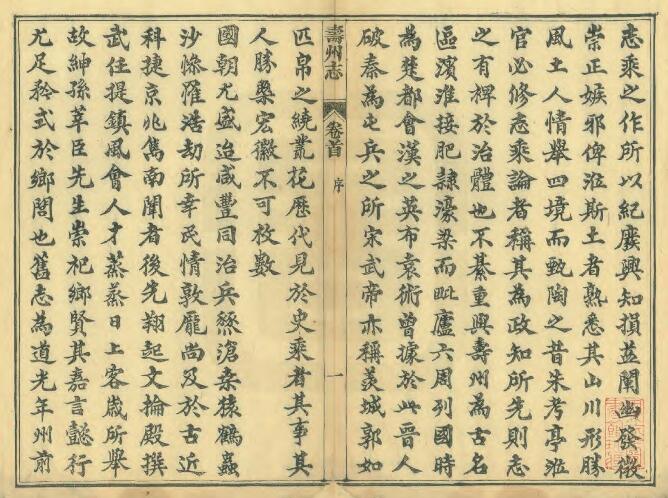 志乘之作所以紀廢興知損益闡幽發微
崇正嫉邪俾涖斯土者熟悉其山川形勝
風土人情舉四境而甄陶之昔朱考亭涖
官必修志乘論者稱其為政知所先則志
之有裨於治體也不綦重與壽州為古名
區濱淮接肥隸濠梁而毗廬六周列國時
為楚都會漢之英布袁術曾據於此晉人
破秦為屯兵之所宋武帝亦稱羨城郭如
壽州志
卷首
序
一
匹帛之繞叢花歷代見於史乘者其事其
人勝槩宏徽不可枚數
國朝尤盛迨咸豐同治兵燹滄桑猿鶴蟲
沙慘罹浩劫所幸民情敦龐尚及於古近
科捷京兆雋南闈者後先翔起文掄殿撰
武任提鎮風會人才蒸蒸日上客歲所舉
故紳孫莘臣先生崇祀鄉賢其嘉言懿行
尤足矜式於鄉閭也舊志為道光年州前